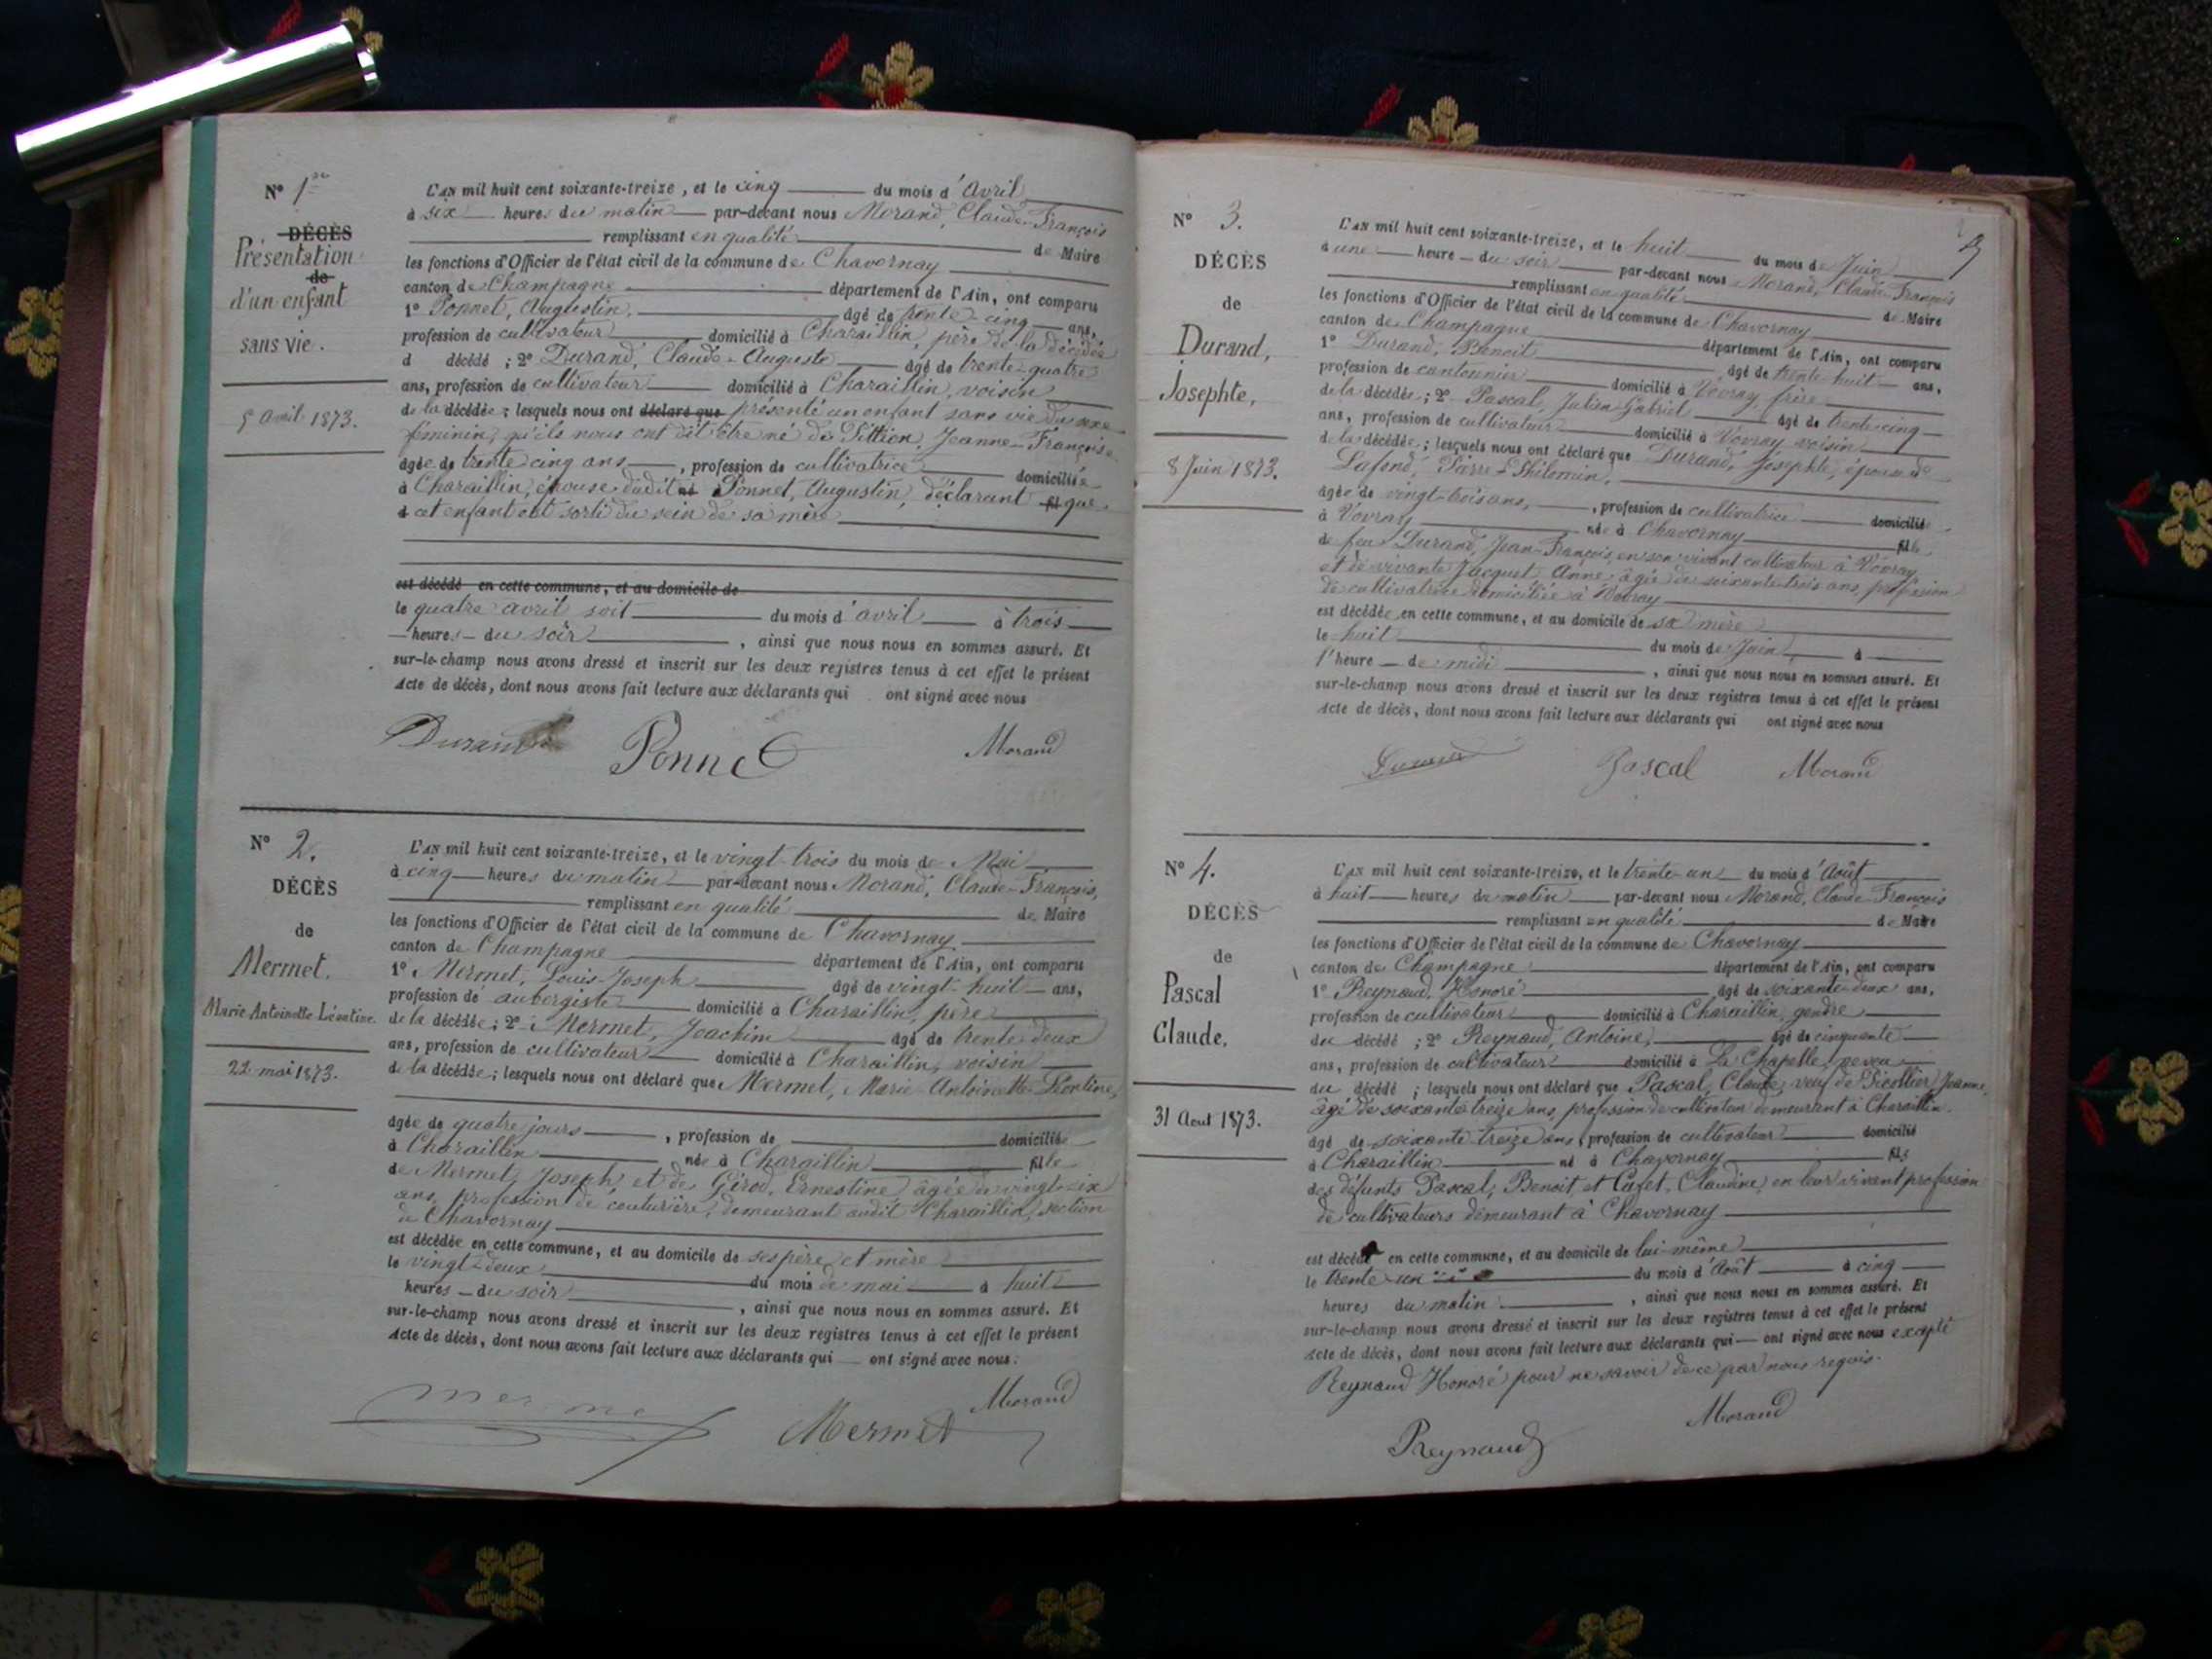 N° 1er
DÉCÈS
Présentation
de
d'un enfant
sans vie.
5 avril 1873.
L'AN mil huit cent soixante-treize, et le cinq du mois d'Avril
à six heures du matin par-devant nous Morand, Claude-François
remplissant en qualité de Maire
les fonctions d'Officier de l'état civil de la commune de Chavornay
canton de Champagne département de l'Ain, ont comparu
1° Ponnet, Augustin, âgé de trente-cinq ans,
profession de cultivateur domicilié à Charaillin, père de la décédée
d décédé ; 2° Durand, Claude-Auguste âgé de trente-quatre
ans, profession de cultivateur domicilié à Charaillin, voisin
de la décédée ; lesquels nous ont déclaré que présenté un enfant sans vie du sexe
féminin, qu'ils nous ont dit être né de Jeanne-Françoise
âgée de trente-cinq ans, profession de cultivatrice domiciliée
à Charaillin, épouse dudit né Ponnet, Augustin, déclarant fil que
à cet enfant est sorti du sein de sa mère
est décédé en cette commune, et au domicile de
le quatre avril soit du mois d'avril à trois
heures du soir, ainsi que nous nous en sommes assuré. Et
sur-le-champ nous avons dressé et inscrit sur les deux registres tenus à cet effet le présent
Acte de décès, dont nous avons fait lecture aux déclarants qui ont signé avec nous
Durand Ponnet Morand
N° 2.
DÉCÈS
de
Mermet.
Marie Antoinette Léontine.
22 mai 1873.
L'AN mil huit cent soixante-treize, et le vingt-trois du mois de Mai
à cinq heures du matin par-devant nous Morand, Claude-François,
remplissant en qualité de Maire
les fonctions d'Officier de l'état civil de la commune de Chavornay
canton de Champagne département de l'Ain, ont comparu
1° Mermet, Louis-Joseph âgé de vingt-huit ans,
profession de aubergiste domicilié à Charaillin, père
de la décédée ; 2° Mermet, Joachim âgé de trente-deux
ans, profession de cultivateur domicilié à Charaillin, voisin
de la décédée ; lesquels nous ont déclaré que Mermet, Marie-Antoinette-Léontine,
âgée de quatre jours, profession de domiciliée
à Charaillin née à Charaillin fille
de Mermet, Joseph et de Girod, Ernestine âgée de vingt-six
ans, profession de couturière, demeurant audit Charaillin, section
de Chavornay
est décédée en cette commune, et au domicile de ses père et mère
le vingt-deux du mois de mai à huit
heures du soir, ainsi que nous nous en sommes assuré. Et
sur-le-champ nous avons dressé et inscrit sur les deux registres tenus à cet effet le présent
Acte de décès, dont nous avons fait lecture aux déclarants qui ont signé avec nous.
Morand
Mermet Mermet
N° 3.
DÉCÈS
de
Durand,
Josephte,
8 Juin 1873.
L'AN mil huit cent soixante-treize, et le huit du mois de Juin
à une heure du soir par-devant nous Morand, Claude-François
remplissant en qualité de Maire
les fonctions d'Officier de l'état civil de la commune de Chavornay
canton de Champagne département de l'Ain, ont comparu
1° Durand, Benoit âgé de trente-huit ans,
profession de cantonnier domicilié à Vovray, frère
de la décédée ; 2° Pascal, Julien-Gabriel âgé de trente-cinq
ans, profession de cultivateur domicilié à Vovray voisin
de la décédée ; lesquels nous ont déclaré que Durand, Josephte, épouse de
Lafond, Pierre-Philomin,
âgée de vingt-trois ans, profession de cultivatrice domiciliée
à Vovray née à Chavornay fille
de feu Durand, Jean-François, en son vivant cultivateur à Vovray
et de vivante Jacquet Anne, âgée de soixante-trois ans, profession
de cultivatrice domiciliée à Vovray
est décédée en cette commune, et au domicile de sa mère
le huit du mois de Juin, à
l'heure de midi, ainsi que nous nous en sommes assuré. Et
sur-le-champ nous avons dressé et inscrit sur les deux registres tenus à cet effet le présent
Acte de décès, dont nous avons fait lecture aux déclarants qui ont signé avec nous
Pascal Morand
N° 4.
DÉCÈS
de
Pascal
Claude.
31 Aout 1873.
L'AN mil huit cent soixante-treize, et le trente-un du mois d'Août
à huit heures du matin par-devant nous Morand, Claude-François
remplissant en qualité de Maire
les fonctions d'Officier de l'état civil de la commune de Chavornay
canton de Champagne département de l'Ain, ont comparu
1° Reynaud, Honoré âgé de soixante-deux ans,
profession de cultivateur domicilié à Charaillin, gendre
du décédé ; 2° Reynaud, Antoine, âgé de cinquante
ans, profession de cultivateur domicilié à La Chapelle, neveu
du décédé ; lesquels nous ont déclaré que Pascal, Claude, veuf de Jeanne,
âgé de soixante-treize ans, profession de cultivateur demeurant à Charaillin.
âgé de soixante-treize ans, profession de cultivateur domicilié
à Charaillin né à Chavornay fils
des défunts Pascal, Benoit et Cufet, Claudine, en leur vivant profession
de cultivateurs demeurant à Chavornay
est décédé en cette commune, et au domicile de lui-même
le trente-un du mois d'Août à cinq
heures du matin, ainsi que nous nous en sommes assuré. Et
sur-le-champ nous avons dressé et inscrit sur les deux registres tenus à cet effet le présent
Acte de décès, dont nous avons fait lecture aux déclarants qui ont signé avec nous excepté
Reynaud Honoré pour ne savoir de ce par nous requis.
Morand
Reynaud